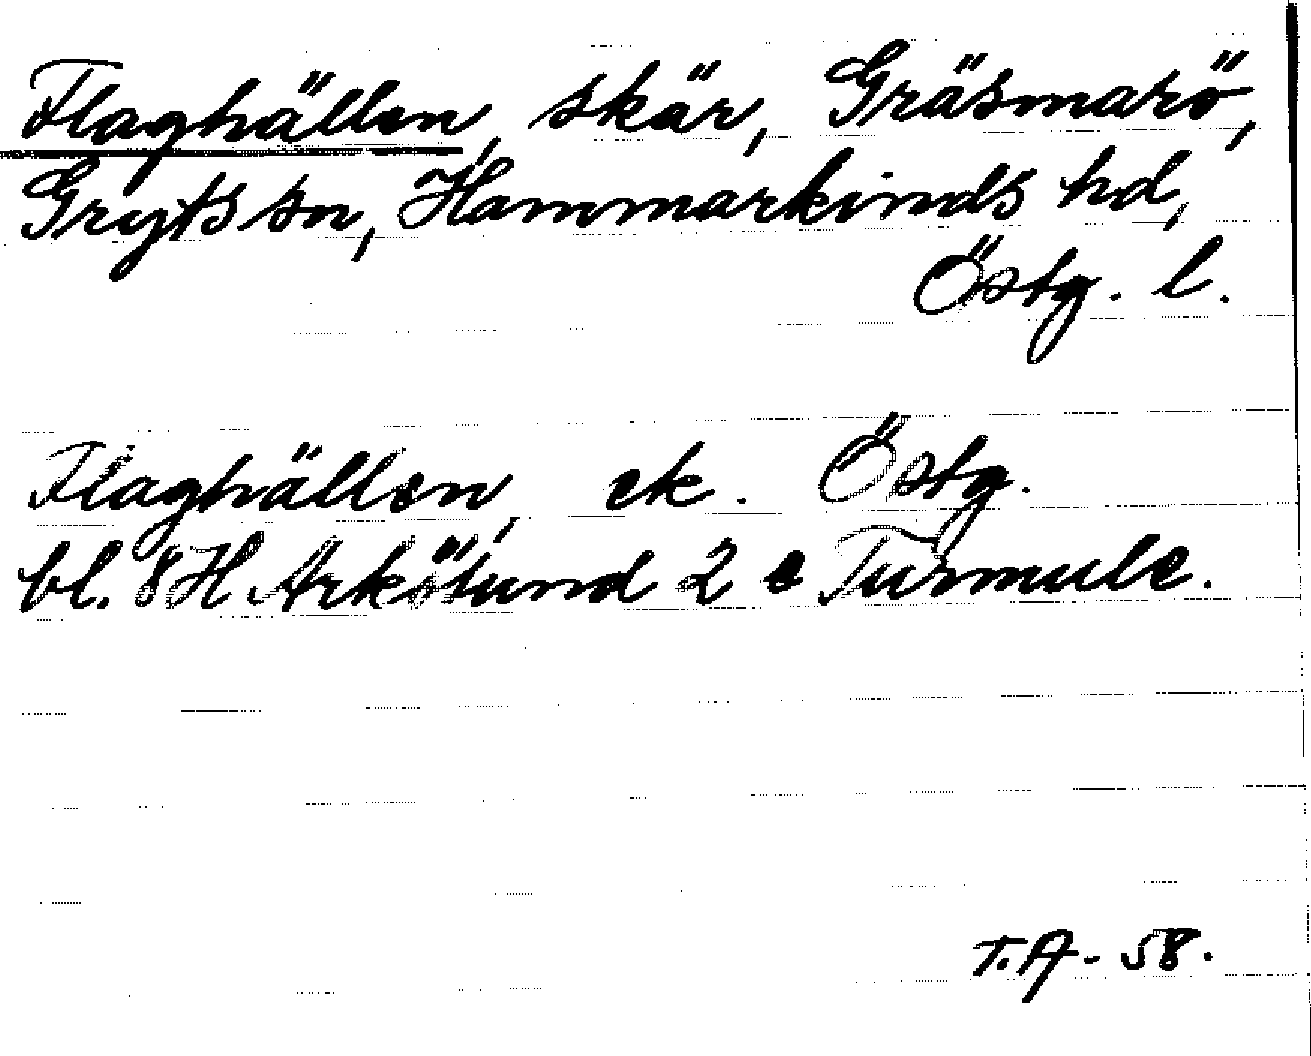 Flaghällen, skär, Gräsmarö,
Gryts sn, Hammarkinds hd,
Östg. l.
Flaghällen, ek. Östg.
bl. 8H Arkösund 2 e Turmulc.
T.A - 58.